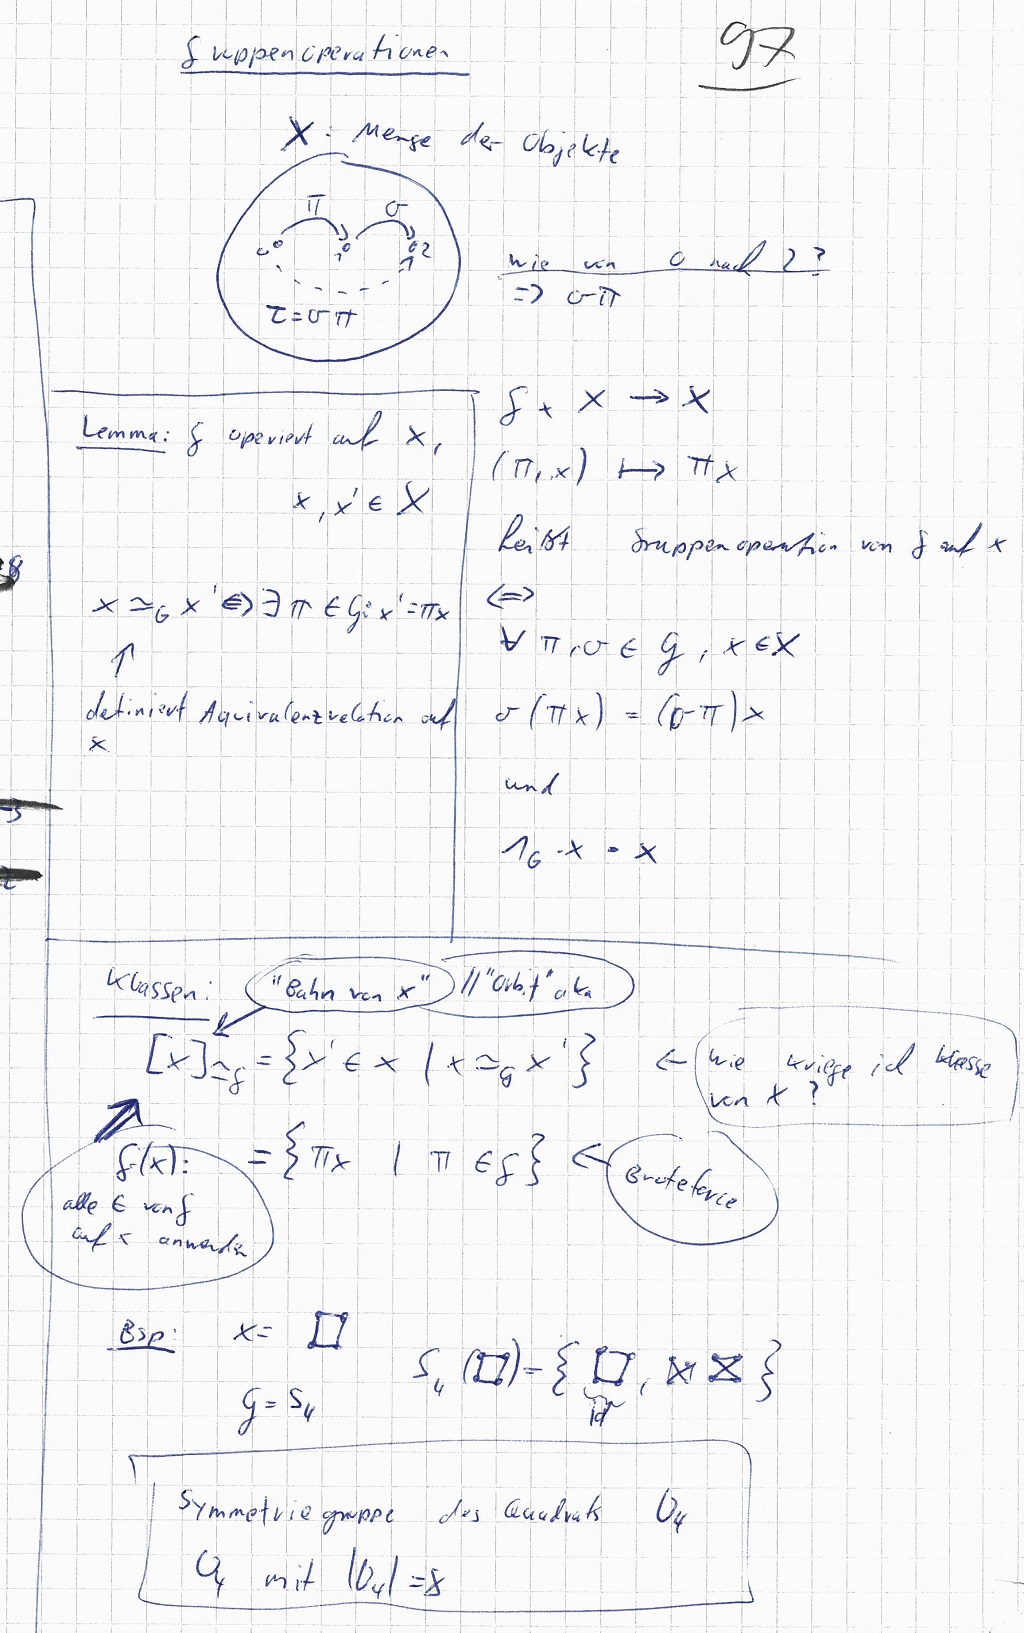 Gruppenoperationen
97
X: Menge der Objekte
π σ
0 1 2
τ = σπ
wie von 0 nach 2?
=> σπ
Lemma: G operiert auf X,
x, x' ∈ X
x ≃G x' <=> ∃ π ∈ G: x' = πx
↑
definiert Äquivalenzrelation auf
X
G × X → X
(π, x) ↦ πx
heißt Gruppenoperation von G auf X
<=>
∀ π, σ ∈ G, x ∈ X
σ(πx) = (σπ)x
und
1G · x = x
Klassen: "Bahn von x" // "Orbit" aka
[x]≃G = {x' ∈ X | x ≃G x'} ← wie kriege ich Klasse
von X?
G(x): = {πx | π ∈ G} ← Bruteforce
alle ∈ von G
auf x anwenden
Bsp: x =
G = S4
S4( ) = { , }
id
Symmetriegruppe des Quadrats D4
D4 mit |D4| = 8